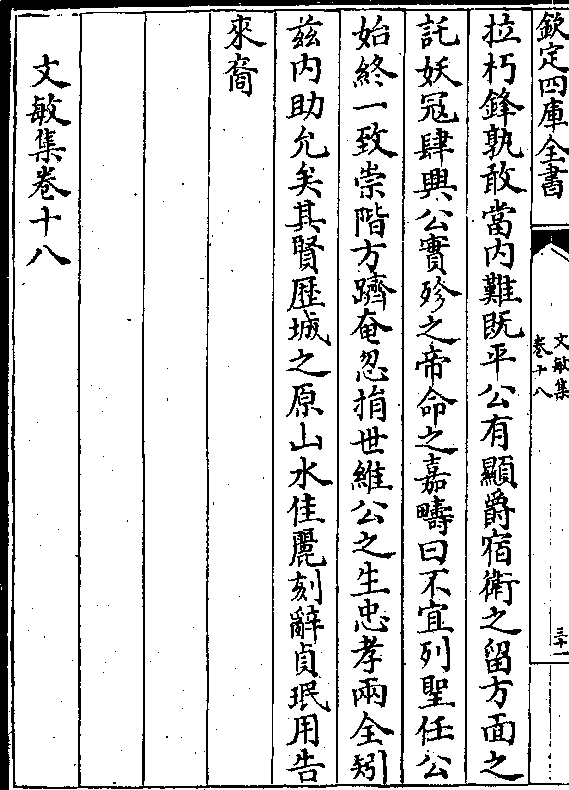 欽定四庫全書
文敏集
卷十八
三十一
拉朽鋒孰敢當内難既平公有顯爵宿衛之留方面之
託妖冦肆興公實殄之帝命之嘉疇曰不宜列聖任公
始終一致崇階方躋奄忽捐世維公之生忠孝兩全矧
兹内助允矣其賢厯城之原山水佳麗刻辭貞珉用告
來裔
文敏集卷十八